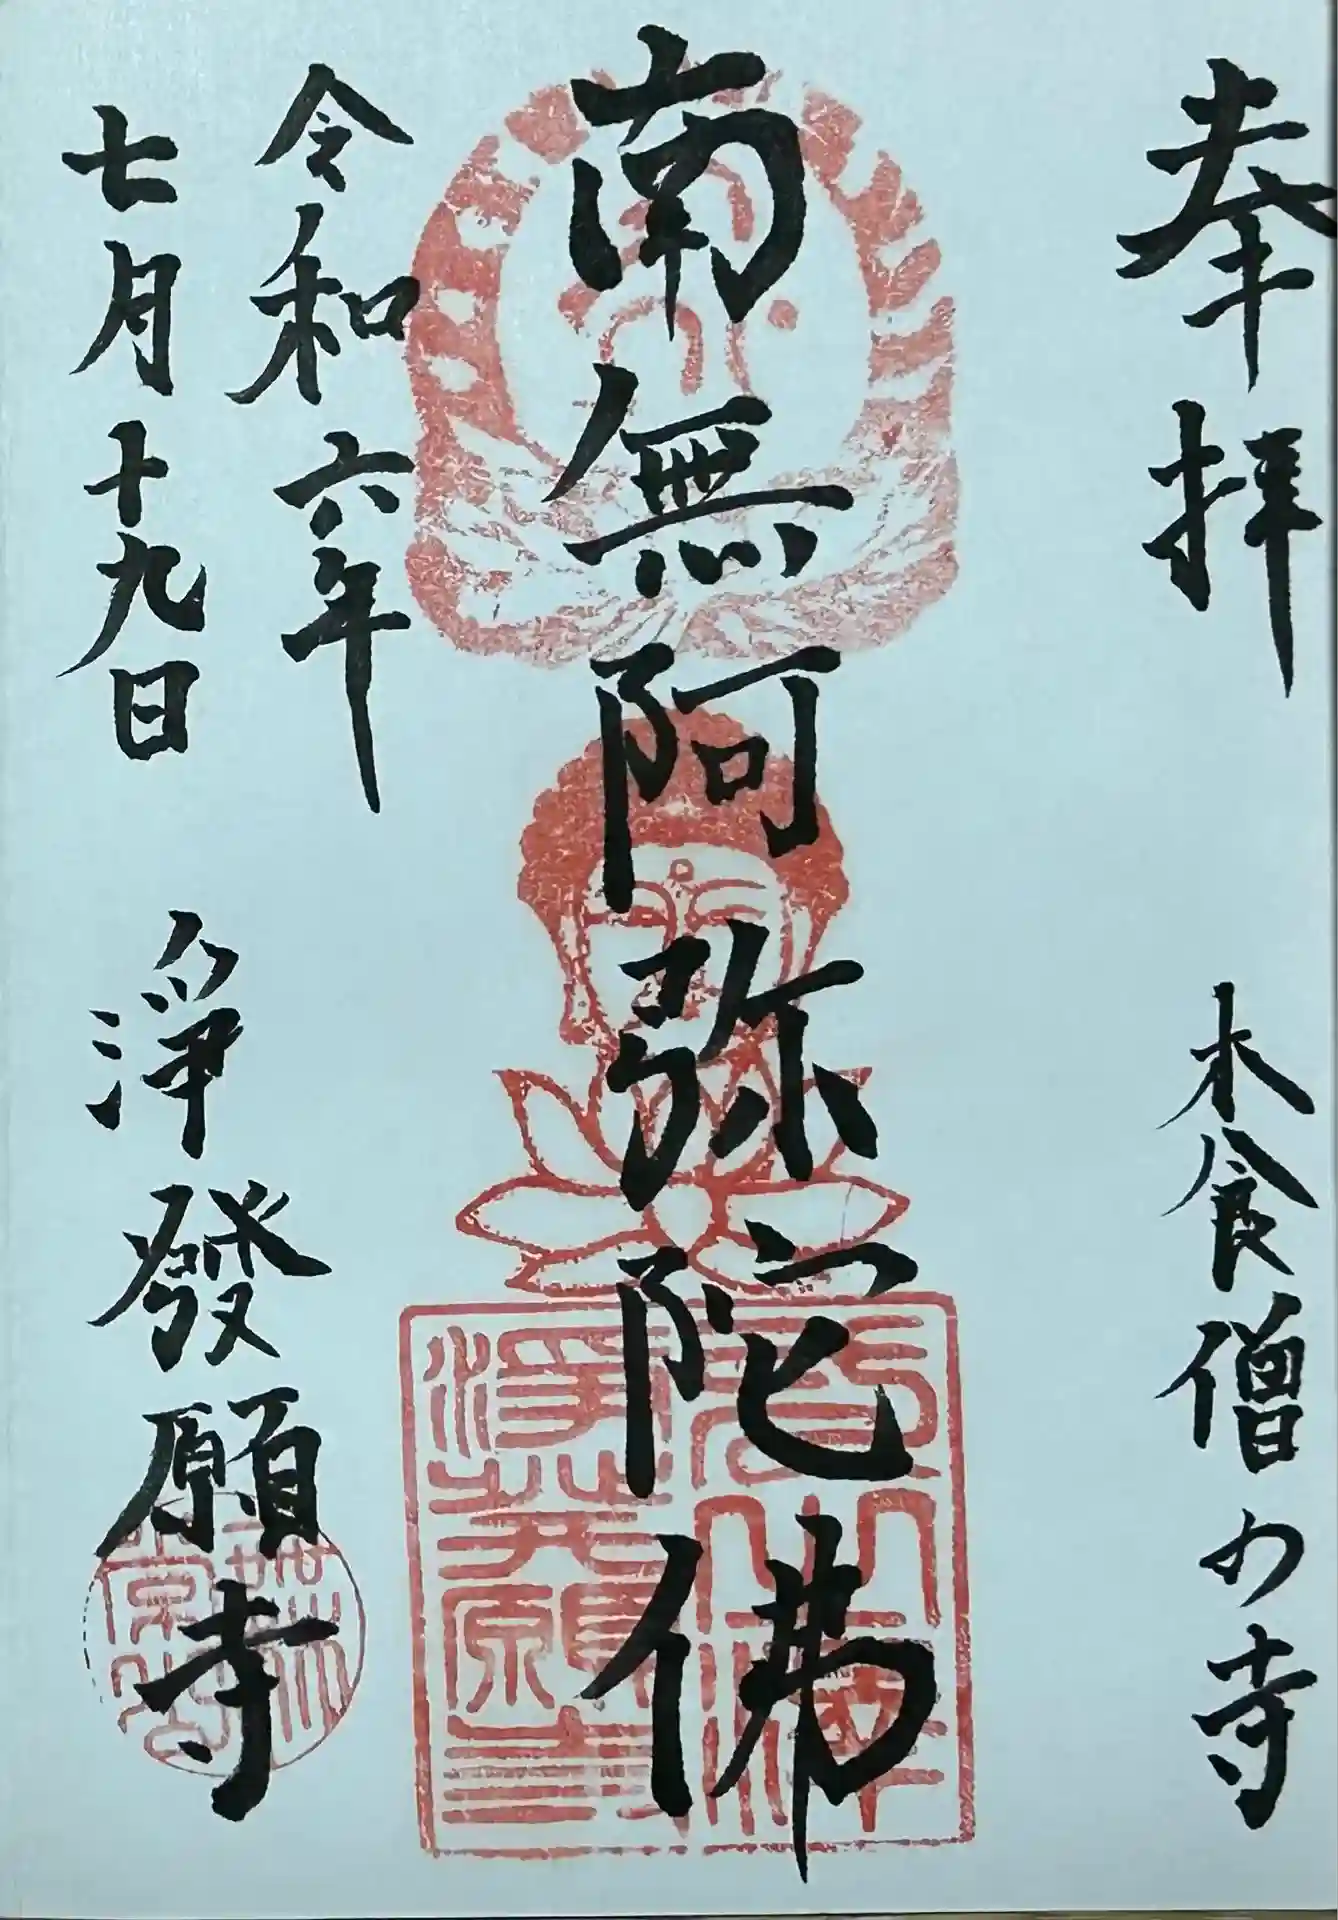 奉拝
木食僧の寺
南無阿弥陀佛
令和六年
七月十九日
淨發願寺